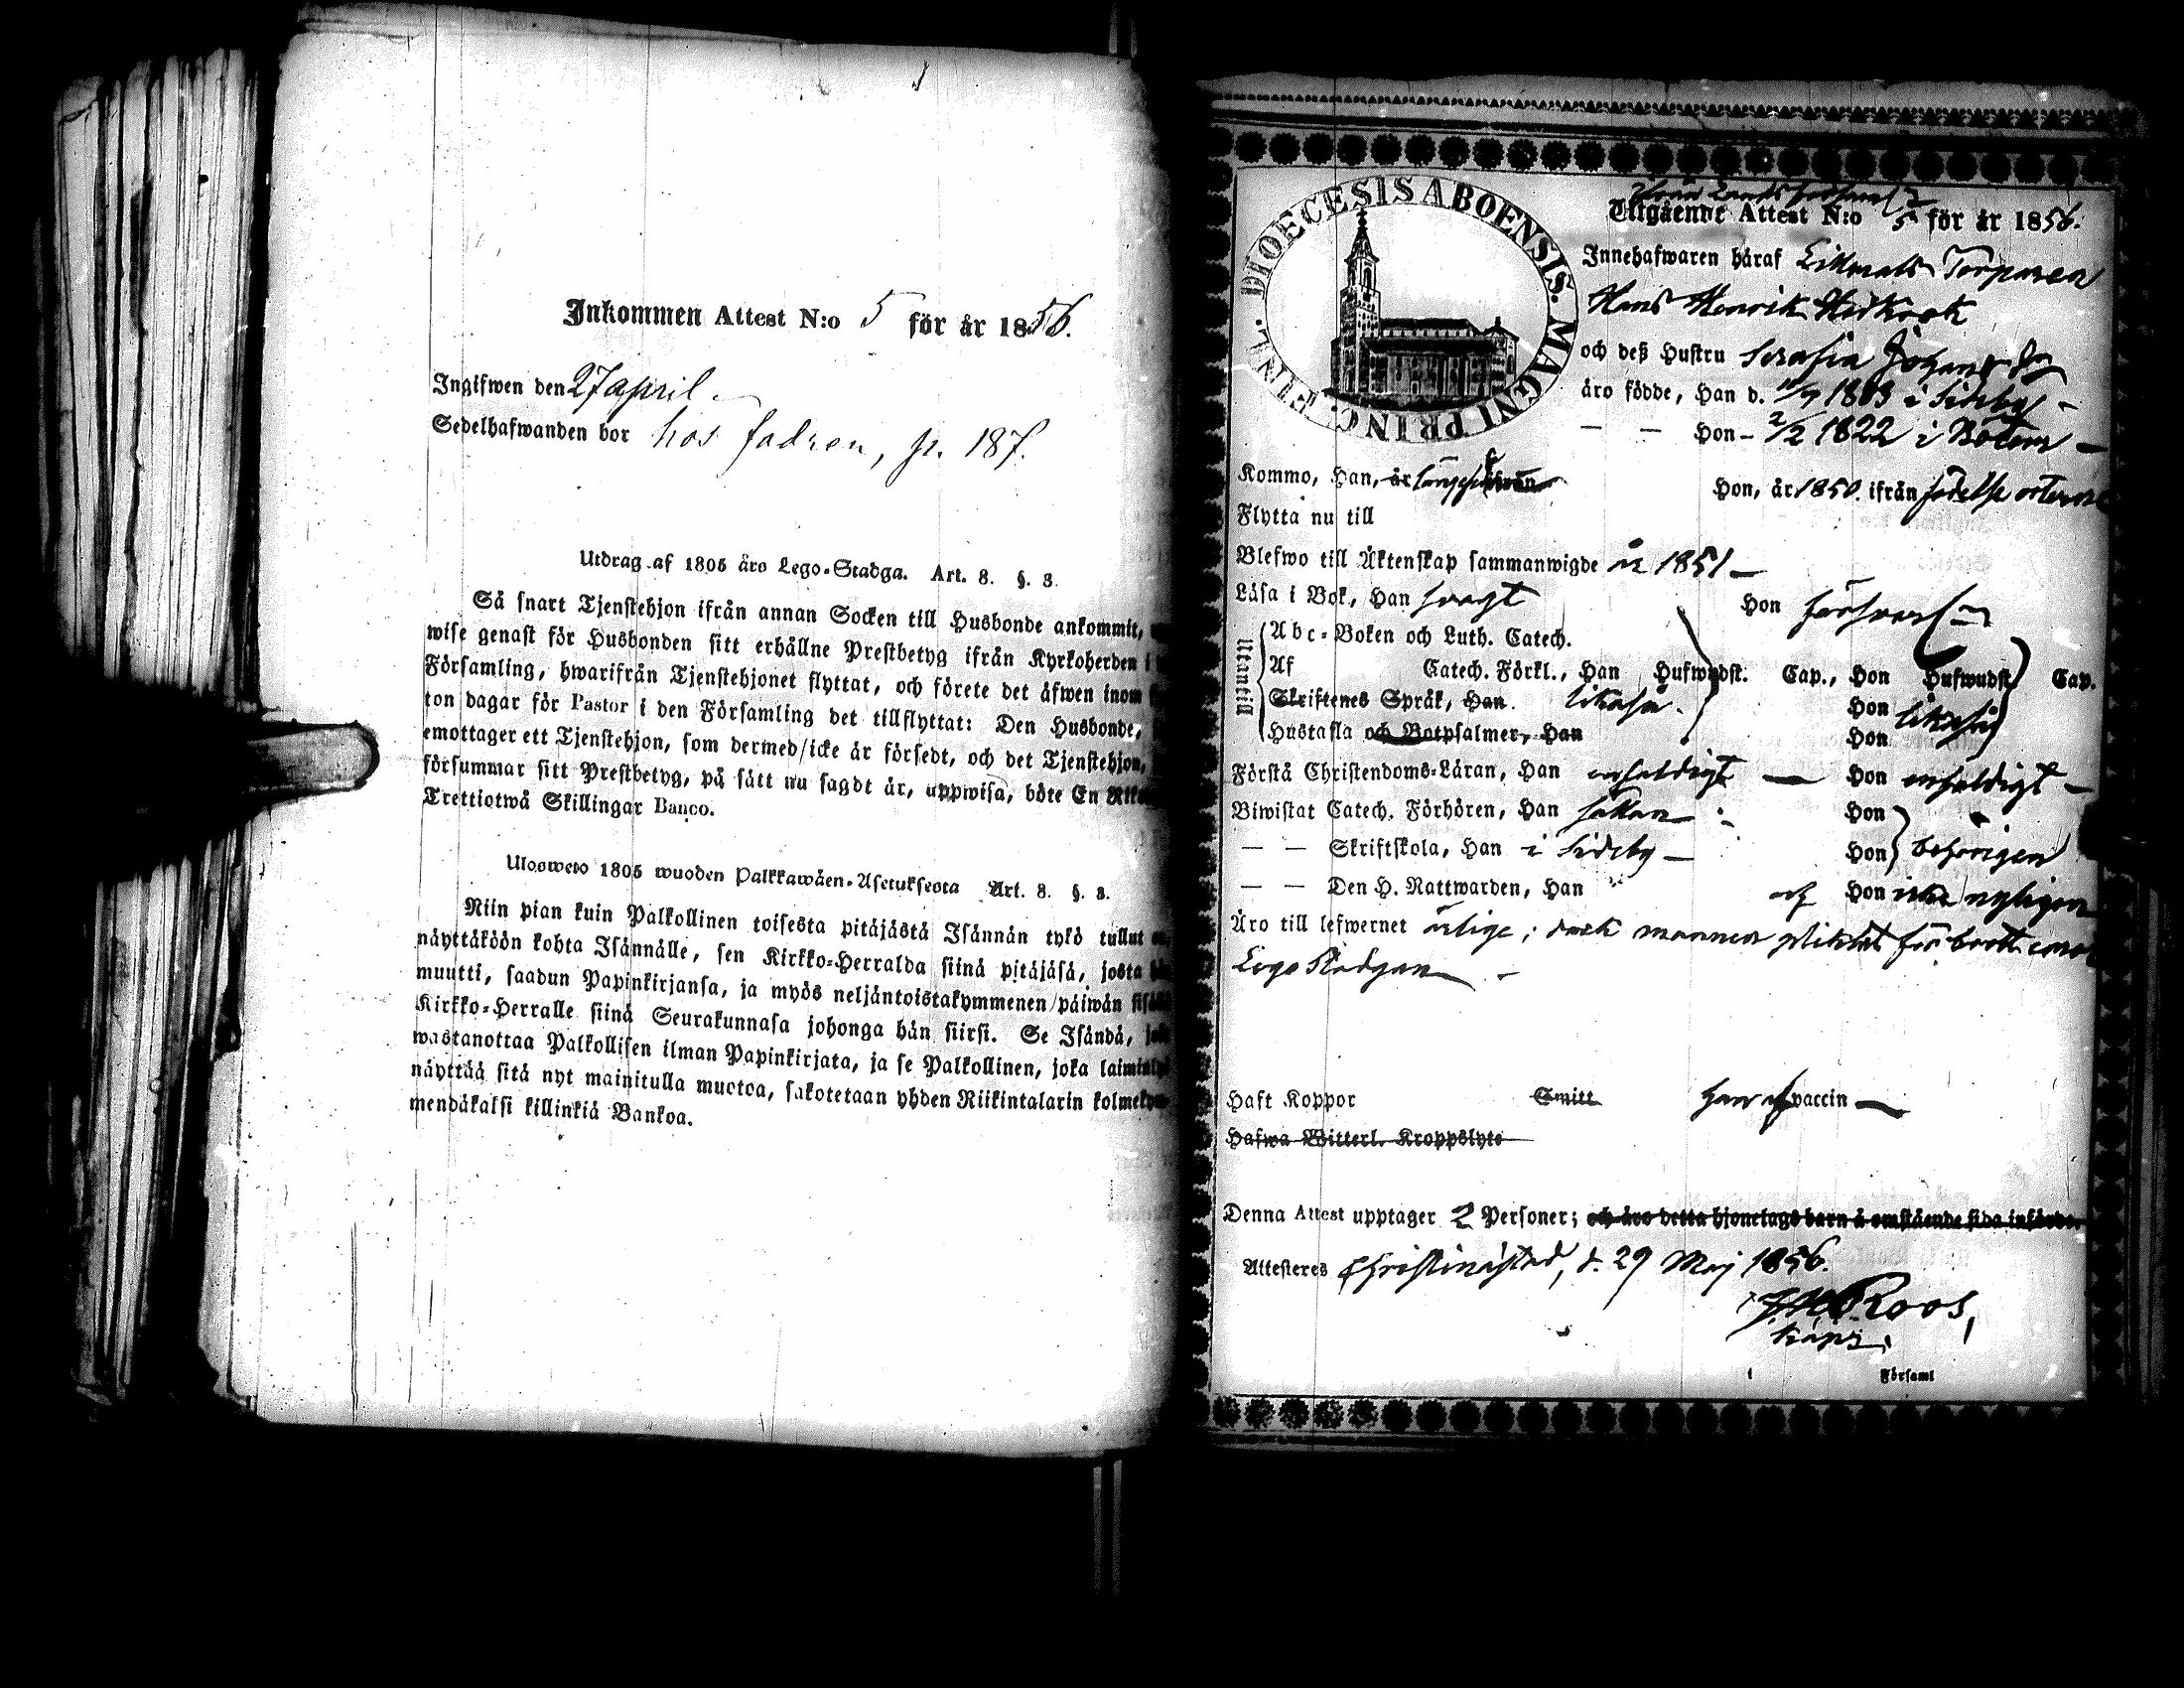 Inkommen Attest N:o 5 för år 1856.
Ingifwen den 27 april.
Sedelhafwanden bor hos fadren, p. 187.
Utdrag af 1805 års Lego-Stadga. Art. 8. §. 3.
Så snart Tjenstehjon ifrån annan Socken till Husbonde ankommit,
wise genast för Husbonden sitt erhållne Prestbetyg ifrån Kyrkoherden i
Församling, hwarifrån Tjenstehjonet flyttat, och förete det äfwen inom
ton dagar för Pastor i den Församling det tillflyttat: Den Husbonde,
emottager ett Tjenstehjon, som dermed icke är försedt, och det Tjenstehjon,
försummar sitt Prestbetyg, på sätt nu sagdt är, uppwisa, böte En
Trettiotwå Skillingar Banco.
Ulosweto 1805 wuoden Palkkawäen-Asetuksesta Art. 8. §. 3.
Niin pian kuin Palkollinen toisesta pitäjästä Isännän tykö tullut
näyttäköön kohta Isännälle, sen Kirkko-Herralda siinä pitäjäsä, josta
muutti, saadun Papinkirjansa, ja myös neljäntoistakymmenen päiwän
Kirkko-Herralle siinä Seurakunnasa johonga hän siirsi. Se Isändä,
wastanottaa Palkollisen ilman Papinkirjata, ja se Palkollinen, joka
näyttää sitä nyt mainitulla muotoa, sakotetaan yhden Riikintalarin
mendäkaksi killinkiä Bankoa.
DIOECESIS ABOENSIS. MAGNI PRINC. FINL.
Utgående Attest N:o 5 för år 1856.
Innehafwaren häraf Torparen
Hans Henrik Hedkrok
och deß Hustru Serafia Johansdr
äro födde, Han d. 11/9 1803 i Sideby -
— — Hon - 2/2 1822 i Bötom -
Kommo, Han, är ifrån Hon, år 1850 ifrån födelse orten
Flytta nu till
Blefwo till Äktenskap sammanwigde år 1851 -
Läsa i Bok, Han swagt Hon
Utantill
Abc-Boken och Luth. Catech.
Af Catech. Förkl., Han Hufwudst. Cap., Hon Hufwudst. Cap.
Skriftenes Språk, Han likaså. Hon likaså
Hustafla och Botpsalmer, Han Hon
Förstå Christendoms-Läran, Han enfaldigt — Hon enfaldigt -
Biwistat Catech. Förhören, Han sällan Hon
— — Skriftskola, Han i Sideby - Hon behörigen
— — Den H. Nattwarden, Han och Hon nyligen
Äro till lefwernet ärlige; dock mannen pliktat för brott emot
Lego Stadgan -
Haft Koppor Smitt vaccin —
Hafwa Witterl. Kroppslyte
Denna Attest upptager 2 Personer; och äro detta hjonelags barn å omstående sida införde.
Attesteres Christinestad, d. 29 Maj 1856.
Roos,
Församl